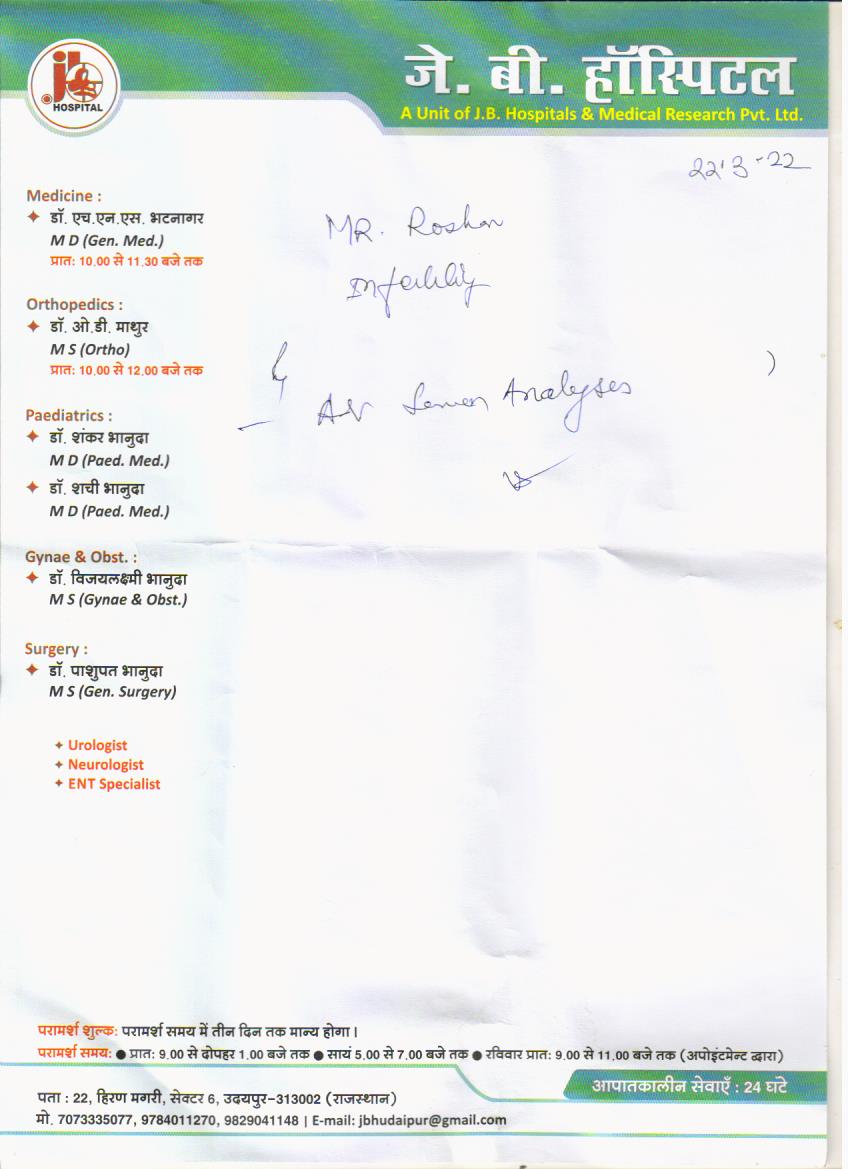 .jb
HOSPITAL
जे. बी. हॉस्पिटल
A Unit of J.B. Hospitals & Medical Research Pvt. Ltd.
22-3-22
MR. Roshan
Infertility
Adv Semen Analyses
Medicine :
डॉ. एच.एन.एस. भटनागर
M D (Gen. Med.)
प्रात: 10.00 से 11.30 बजे तक
Orthopedics :
डॉ. ओ.डी. माथुर
M S (Ortho)
प्रात: 10.00 से 12.00 बजे तक
Paediatrics :
डॉ. शंकर भानुदा
M D (Paed. Med.)
डॉ. शची भानुदा
M D (Paed. Med.)
Gynae & Obst. :
डॉ. विजयलक्ष्मी भानुदा
M S (Gynae & Obst.)
Surgery :
डॉ. पाशुपत भानुदा
M S (Gen. Surgery)
Urologist
Neurologist
ENT Specialist
परामर्श शुल्क: परामर्श समय में तीन दिन तक मान्य होगा।
परामर्श समय: ● प्रात: 9.00 से दोपहर 1.00 बजे तक ● सायं 5.00 से 7.00 बजे तक ● रविवार प्रात: 9.00 से 11.00 बजे तक (अपोइंटमेन्ट द्वारा)
आपातकालीन सेवाएँ : 24 घंटे
पता : 22, हिरण मगरी, सेक्टर 6, उदयपुर-313002 (राजस्थान)
मो. 7073335077, 9784011270, 9829041148 | E-mail: jbhudaipur@gmail.com